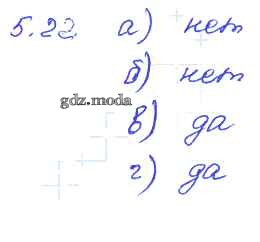 5.22. а) нет
б) нет
gdz.moda
в) да
г) да